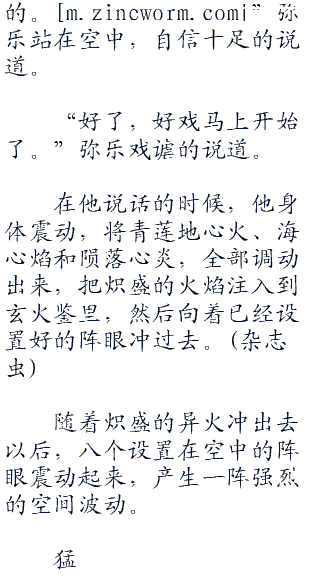 的。[m.zineworm.com]”弥
乐站在空中，自信十足的说
道。
“好了，好戏马上开始
了。”弥乐戏谑的说道。
在他说话的时候，他身
体震动，将青莲地心火、海
心焰和陨落心炎，全部调动
出来，把炽盛的火焰注入到
玄火鉴里，然后向着已经设
置好的阵眼冲过去。(杂志
虫)
随着炽盛的异火冲出去
以后，八个设置在空中的阵
眼震动起来，产生一阵强烈
的空间波动。
猛